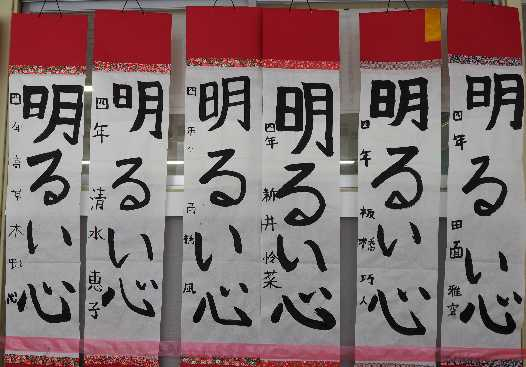 明るい心
四年
明るい心
四年 清水 恵子
明るい心
四年
明るい心
四年 新井 怜菜
明るい心
四年 板橋 巧人
明るい心
四年 田面